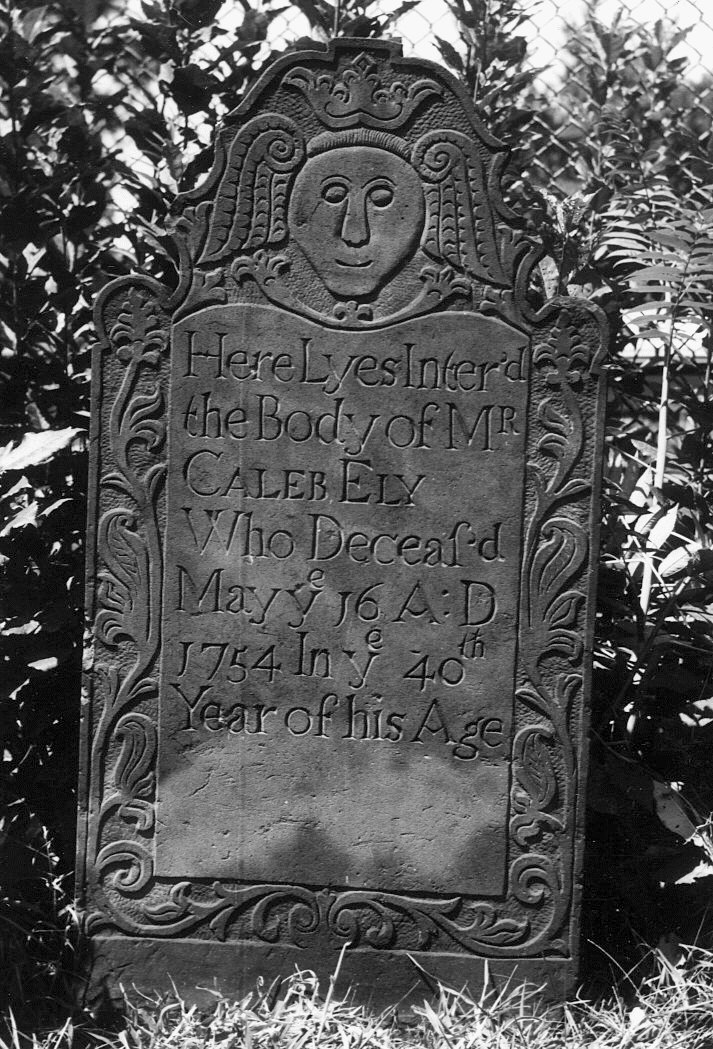 Here Lyes Inter'd
the Body of MR
CALEB ELY
Who Deceaſ'd
May ye 16 A:D
1754 In ye 40th
Year of his Age